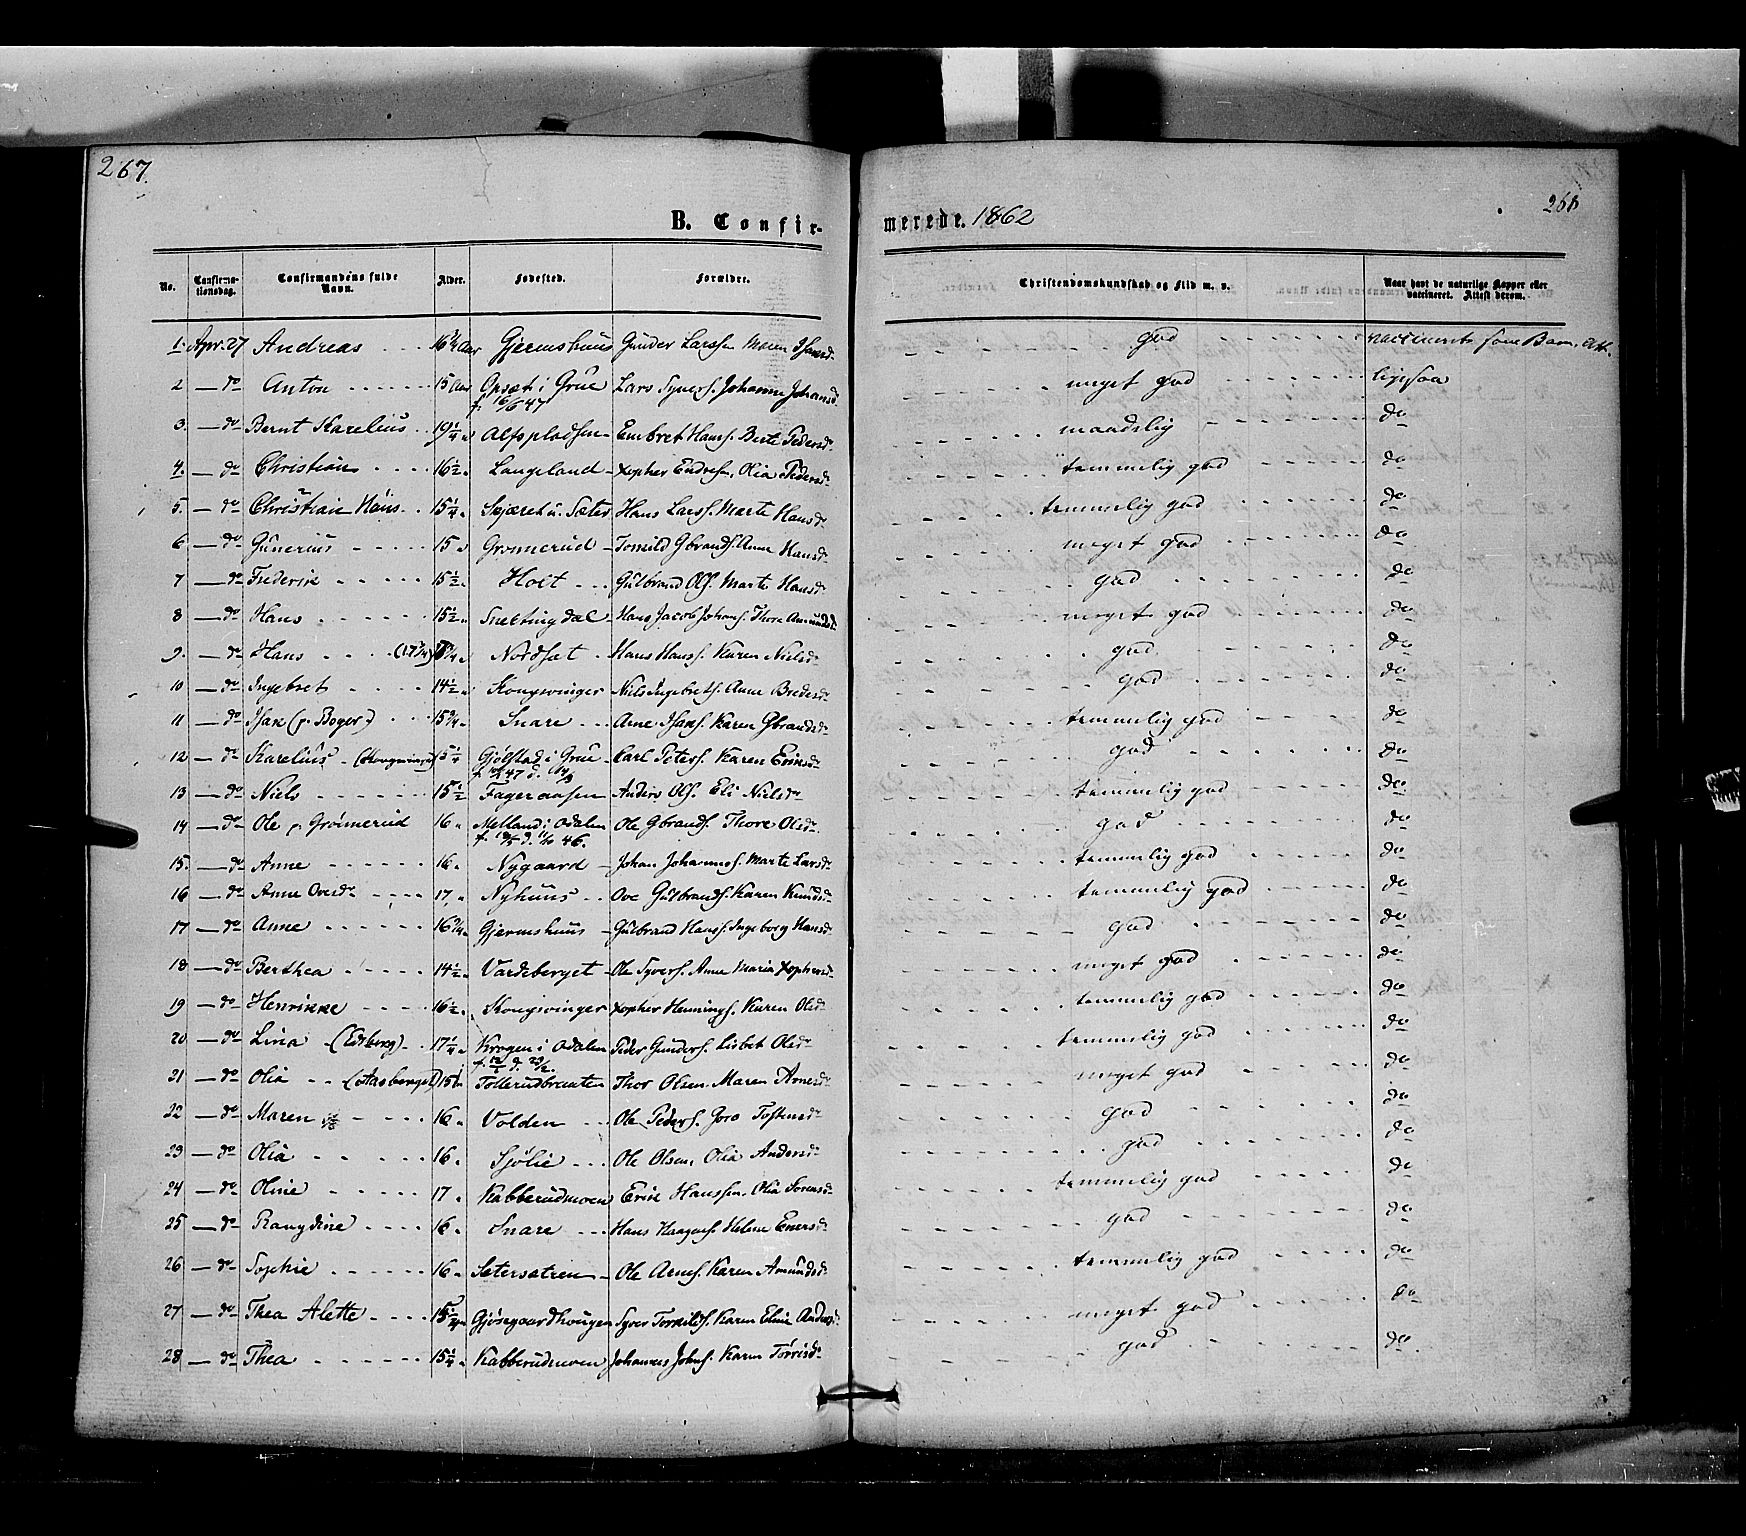 267.
268
B. Confir-
merede. 1862
No.
Confirma-
tionsdag.
Confirmandens fulde
Navn.
Alder.
Fødested.
Forældre.
Christendomskundskab og Flid m. v.
Naar havt de naturlige Kopper eller
vaccineret. Attest derom.
1. Apr. 27 Andreas 16 3/4 Aar Gjermshuus Gunder Larssen Maren Isaksd. god vaccineret som Barn. Att.
2 — do Anton 15 Aar Opsæt i Grue Lars Syvers. Johanne Johansd. meget god ligesaa
f. 16/6 47
3. — do Bernt Karelius 19 1/4 Alfspladsen Embret Hans. Berte Pedersd. maadelig do
4. — do Christian 16 1/2 Langeland Xopher Endresen, Olia Pedersd. temmelig god do
5. — do Christian Hans 15 1/4 Hans Larss. Marte Hansd. temmelig god do
6 — do Gunerius 15 Grønnerud Tomild Gbrands. Anne Hansd. meget god do
7 — do Frederik 15 1/2 Holt Gulbrand Ols. Marte Hansd. god do
8 — do Hans 15 1/2 Snelting dal Hans Jacob Johans. Thore Amundsd. meget god do
9. — do Hans (17 1/4) Nordset Hans Hanss. Karen Nielsd. god do
10 — do Ingebret 14 1/2 Kongsvinger Niels Ingebrets. Anne Bredesd. god do
11 — do Isak (p. Roger) 15 3/4 Snare Arne Isaks. Karen Gbrandsd. temmelig god do
12 — do Karelius (Kongsvinger) 15 1/4 Gjølstad i Grue Carl Peters. Karen Eriksd. god do
13 — do Niels 15 1/2 Fageraasen Anders Ols. Eli Nielsd. temmelig god do
14 — do Ole p. Grønnerud 16 Melland i Odalen Ole Gbrands. Thore Olsd. god do
15. — do Anne 16 Nygaard Johan Johannes. Marte Larsd. temmelig god do
16 — do Anne Ovesd. 17 Nyhuus Ove Gulbrands. Karen Knudsd. temmelig god do
17 — do Anne 16 3/4 Gjermshuus Gulbrand Hans. Ingeborg Hansd. god do
18 — do Berthea 14 1/2 Vardeberget Ole Syvers. Anne Maria Xophersd. meget god do
19 — do Henrikke 16 1/2 Kongsvinger Xopher Hennings. Karen Olsd. temmelig god do
20 — do Lina (Edsberg) 17 1/4 Krogen i Odalen Peder Gunders. Lisbet Olsd. temmelig god do
21 — do Olia (Aasberget) 15 1/2 Tollerudbraaten Thor Olsen Maren Arnesd. meget god do
22 — do Maren 16 Volden Ole Peders. Goro Tostensd. god do
23 — do Olia 16 Sjølie Ole Olsen, Olia Andersd. god do
24 — do Oline 17 Kabberudmoen Erik Hanssen. Olia Sørensd. temmelig god do
25 — do Rangdine 16 Snare Hans Haagens. Helene Enersd. god do
26 — do Sophie 16 Sætersætren Ole Arnes. Karen Amundsd. temmelig god do
27 — do Thea Alette 15 3/4 Gjøsegaardhougen Syver Torkilds. Karen Eline Andersd. meget god do
28 — do Thea 15 1/4 Kabberudmoen Johannes Johns. Karen Torrisd. god do